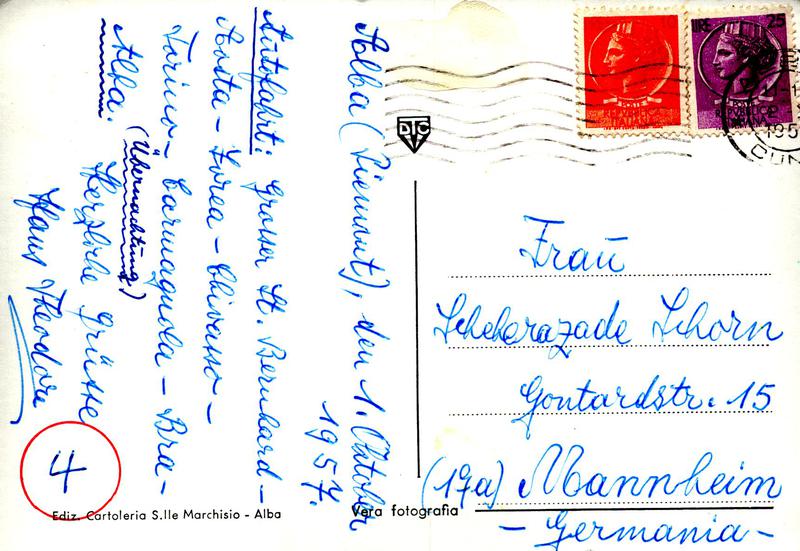 Alba (Piemont), den 1. Oktober
1957.
Autofahrt: Grosser St. Bernhard -
Aosta - Ivrea - Chivasso -
Torino - Carmagnola - Bra -
Alba. (Übernachtung)
Herzliche Grüsse
Hans Theodore
4
Ediz. Cartoleria S.lle Marchisio - Alba
Vera fotografia
DTC
POSTE
REPUBBLICA
ITALIANA
LIRE 25
POSTE
REPUBBLICA
ITALIANA
Frau
Scheherazade Schorn
Gontardstr. 15
(17a) Mannheim
- Germania -